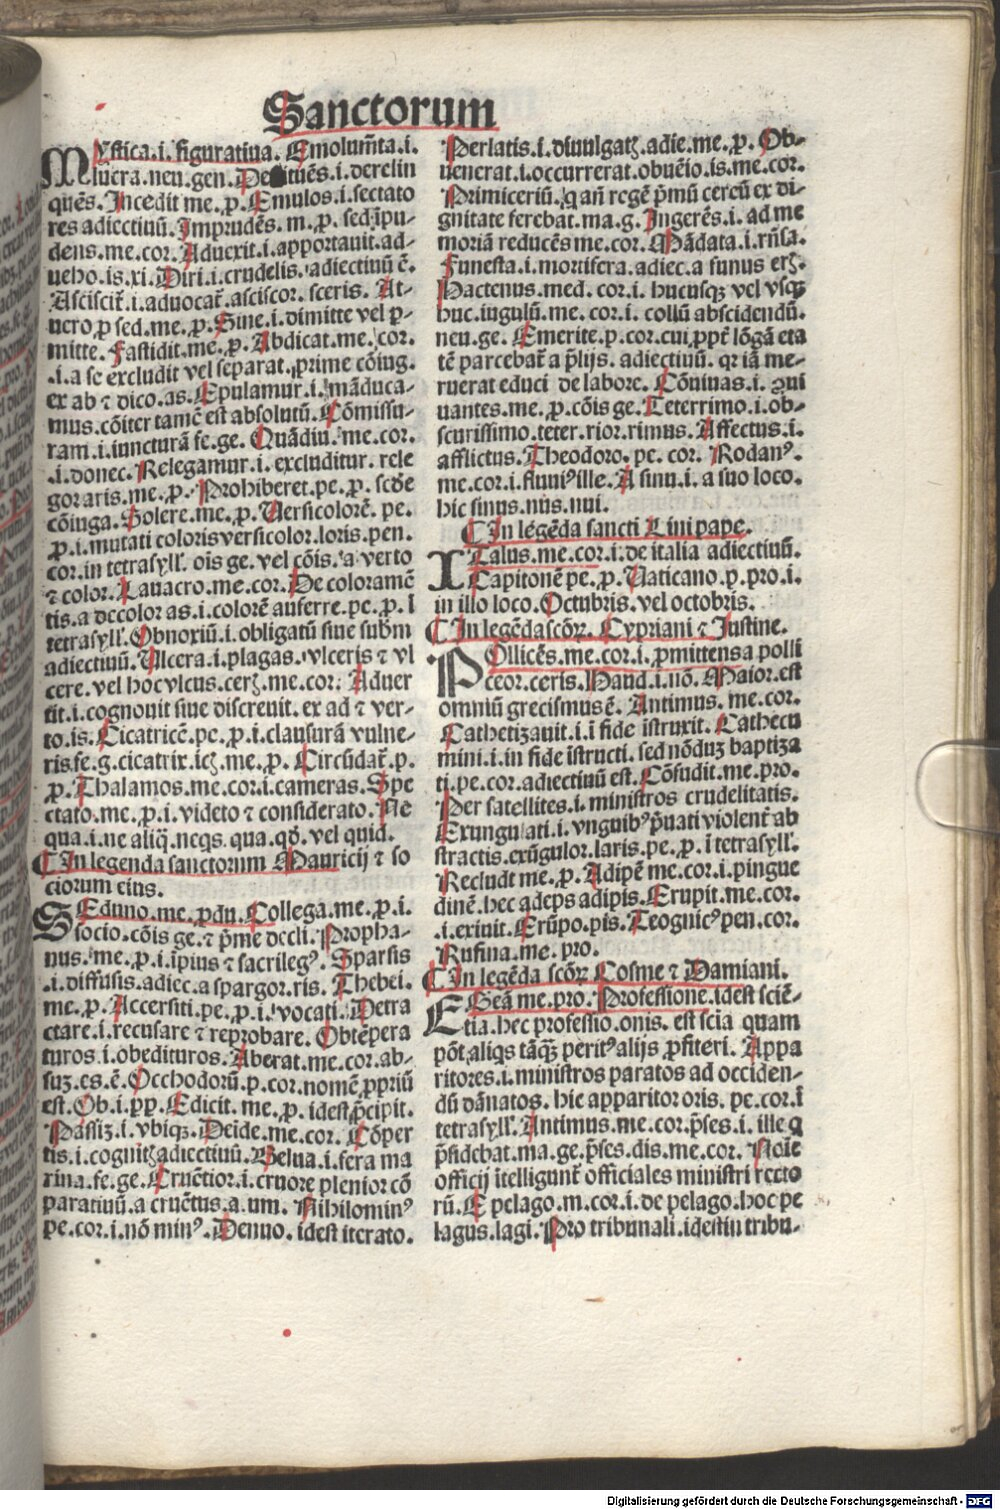 Sanctorum
MYstica.i. figuratiua. Emolum̃ta.i.
lucra.neu.gen. De tuẽs.i.derelin
quẽs. Incedit me. ꝓ. Emulos.i.sectato
res adiectiuũ. Imprudẽs. m. ꝓ. sed ipu-
dens.me.cor. Aduexit.i.apportauit.ad-
ueho.is.xi. Diri.i.crudelis.adiectiuũ ẽ.
Asciscit̃.i.aduocat̃.asciscor.sceris. At-
uero ꝓ sed.me. ꝓ. Sine.i.dimitte vel ꝑ-
mitte. Fastidit.me. ꝓ. Abdicat.me.cor.
.i.a se excludit vel separat. prime cõiug.
ex ab ⁊ dico.as. Epulamur.i. mãduca-
mus.cõiter tamẽ est absolutũ. Cõmissu-
ram.i.iuncturã fe.ge. Quãdiu.me.cor.
.i.donec. Relegamur.i.excluditur.rele
gor aris.me. ꝓ. Prohiberet.pe. ꝓ. scðe
cõiuga. Solere.me. ꝓ. Versicolorẽ. pe.
ꝓ.i.mutati coloris versicolor.loris.pen.
cor.in tetrasyll'. oĩs ge. vel cõis. a verto
⁊ color. Lauacro.me.cor. De coloramẽ
tis.a decolor as.i.colorẽ auferre.pe. ꝓ. ĩ
tetrasyll'. Obnoxiũ.i.obligatũ siue subm̃
adiectiuũ. Ulcera.i.plagas. vlceris ⁊ vl
cere.vel hoc vlcus.ceꝝ.me.cor: Aduer
tit.i.cognouit siue discreuit. ex ad ⁊ ver-
to.is. Cicatricẽ.pe. ꝓ.i.clausurã vulne-
ris.fe.g.cicatrix.icꝫ.me. ꝓ. Circũdat̃. ꝓ.
ꝓ. Thalamos.me.cor.i.cameras. Spe
ctato.me. ꝓ.i. videto ⁊ considerato. Ne
qua.i.ne aliq̃.neqs.qua.qð.vel quid.
In legenda sanctorum Mauricij ⁊ so
ciorum eius.
SEduno.me. ꝓdu. Collega.me. ꝓ.i.
socio.cõis ge. ⁊ p̃me dccli. Propha-
nus. me. ꝓ.i.ĩpius ⁊ sacrilegꝰ. Sparsis
.i.diffusis.adiec.a spargor.ris. Thebei.
me. ꝓ. Accersiti.pe. ꝓ.i. vocati. Detra
ctare.i.recusare ⁊ reprobare. Obtẽpera
turos.i.obedituros. Aberat.me.cor.ab-
suꝫ.es.ẽ. Occhodorũ.p.cor.nomẽ ꝓpriũ
est. Ob.i.pp. Edicit. me. ꝓ. idest p̃cipit.
Passiꝫ.i.vbiqꝫ. Deide.me.cor. Cõper
tis.i.cognitꝫ adiectiuũ. Belua.i.fera ma
rina.fe.ge. Cruẽtior.i.cruore plenior cõ
paratiuũ.a cruẽtus.a.um. Nihilominꝰ
pe.cor.i.nõ minꝰ. Denuo. idest iterato.
Perlatis.i.diuulgatꝫ.adie.me. ꝓ. Ob-
uenerat.i.occurrerat.obuẽio.is.me.cor.
Primiceriũ. q añ regẽ p̃mũ cereũ ex di-
gnitate ferebat.ma.g. Ingerẽs.i. ad me
moriã reducẽs me.cor. Mãdata.i.rñsa.
Funesta.i.mortifera.adiec.a funus erꝫ.
Hactenus.med. cor.i. hucusqꝫ vel vsqꝫ
huc.iugulũ.me. cor.i.collũ abscidendũ.
neu.ge. Emerite.p.cor.cui ꝓpt̃ lõgã eta
tẽ parcebat̃ a p̃lijs. adiectiuũ. qr iã me-
ruerat educi de labore. Cõniuas.i. ꝯui
uantes.me. ꝓ.cõis ge. Teterrimo.i.ob-
scurissimo.teter.rior.rimus. Affectus.i.
afflictus. Theodoro. pe. cor. Rodanꝰ.
me.cor.i.fluuiꝰ ille. A sinu.i. a suo loco.
hic sinus.nus.nui.
In legẽda sancti Lini pape.
ITalus.me.cor.i.de italia adiectiuũ.
Capitonẽ pe. ꝓ. Vaticano. p. pro.i.
in illo loco. Octubris. vel octobris.
In legẽda scõꝝ. Cypriani ⁊ Justine.
POllicẽs.me.cor.i. ꝓmittens a polli
ceor.ceris. Haud.i.nõ. Maior.est
omniũ grecismus ẽ. Antimus. me.cor.
Cathetizauit.i.ĩ fide ĩstruxit. Cathecu
mini.i.in fide ĩstructi. sed nõduꝫ baptiza
ti.pe.cor.adiectiuũ est. Cõfudit.me.pro.
Per satellites.i. ministros crudelitatis.
Exungulati.i.vnguibꝰ p̃uati violent̃ ab
stractis.exũgulor.laris.pe. ꝓ. ĩ tetrasyll'.
Recludt me. ꝓ. Adipẽ me.cor.i.pingue
dinẽ. hec adeps adipis. Erupit.me.cor.
.i.exiuit. Erũpo.pis. Teognicꝰ pen.cor.
Rufina.me.pro.
In legẽda scõꝝ Cosme ⁊ Damiani.
EGeã me.pro. Professione.idest sciẽ-
tia.hec professio.onis. est scia quam
põt aliqs tãqꝫ peritꝰ alijs ꝓfiteri. Appa
ritores.i.ministros paratos ad occiden-
dũ dãnatos. hic apparitor oris. pe.cor.ĩ
tetrasyll'. Antimus.me.cor.p̃ses.i. ille q
p̃sidebat.ma.ge.p̃ses.dis.me.cor. Noĩe
officij ĩtelligunt̃ officiales ministri recto
rũ. E pelago.m.cor.i.de pelago.hoc pe
lagus.lagi. Pro tribunali.idest in tribu-
Digitalisierung gefördert durch die Deutsche Forschungsgemeinschaft - DFG